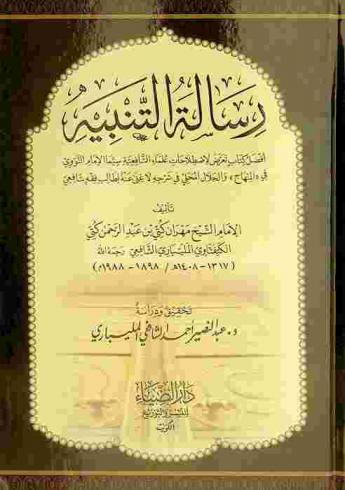 رسالة التنبيه
أفضل كتاب تعرض لاصطلاحات علماء الشافعية سيما الإمام النووي
في «المنهاج» والجلال المحلي في شرحه لا غنى عنه لطالب فقه شافعي
تأليف
الإمام الشيخ مهران كتي بن عبد الرحمن كتي
الكيفتاوي المليباري الشافعي رحمه الله
(١٣١٧-١٤٠٨هـ / ١٨٩٨-١٩٨٨م)
تحقيق ودراسة
د. عبد النصير أحمد الشافعي المليباري
دار الضياء
للنشر والتوزيع
الكويت